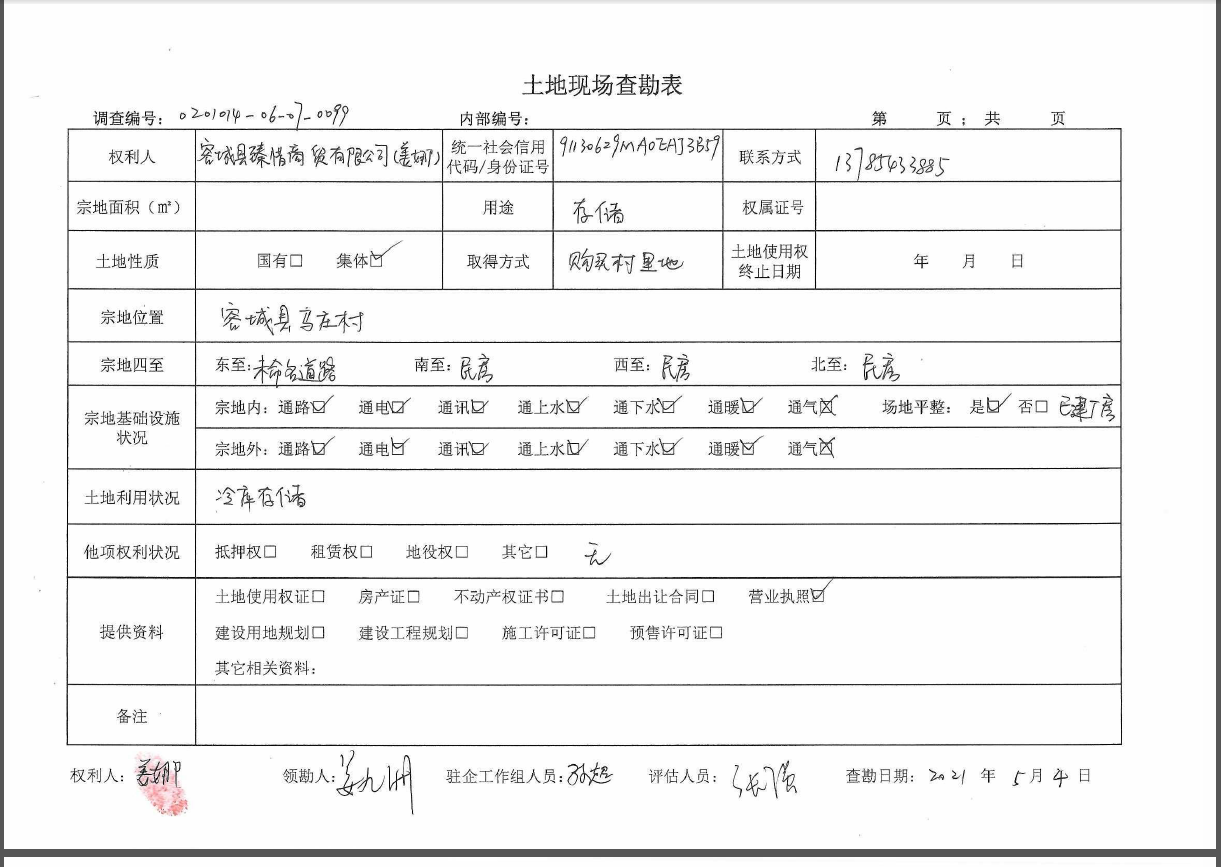 土地现场查勘表
调查编号：0201014-06-07-0099 内部编号： 第 页；共 页
权利人 容城县臻惜商贸有限公司(姜娜) 统一社会信用代码/身份证号 91130629MA0EAJ3B59 联系方式 13785433885
宗地面积（㎡） 用途 存储 权属证号
土地性质 国有□ 集体☑ 取得方式 购买村里地 土地使用权终止日期 年 月 日
宗地位置 容城县马庄村
宗地四至 东至：未命名道路 南至：民房 西至：民房 北至：民房
宗地基础设施状况 宗地内：通路☑ 通电☑ 通讯☑ 通上水☑ 通下水☑ 通暖☑ 通气☒ 场地平整： 是☑ 否□ 已建厂房
宗地外：通路☑ 通电☑ 通讯☑ 通上水☑ 通下水☑ 通暖☑ 通气☒
土地利用状况 冷库存储
他项权利状况 抵押权□ 租赁权□ 地役权□ 其它□ 无
提供资料 土地使用权证□ 房产证□ 不动产权证书□ 土地出让合同□ 营业执照☑
建设用地规划□ 建设工程规划□ 施工许可证□ 预售许可证□
其它相关资料：
备注
权利人：姜娜 领勘人：姜九洲 驻企工作组人员：孙超 评估人员：张强 查勘日期：2021 年 5 月 4 日